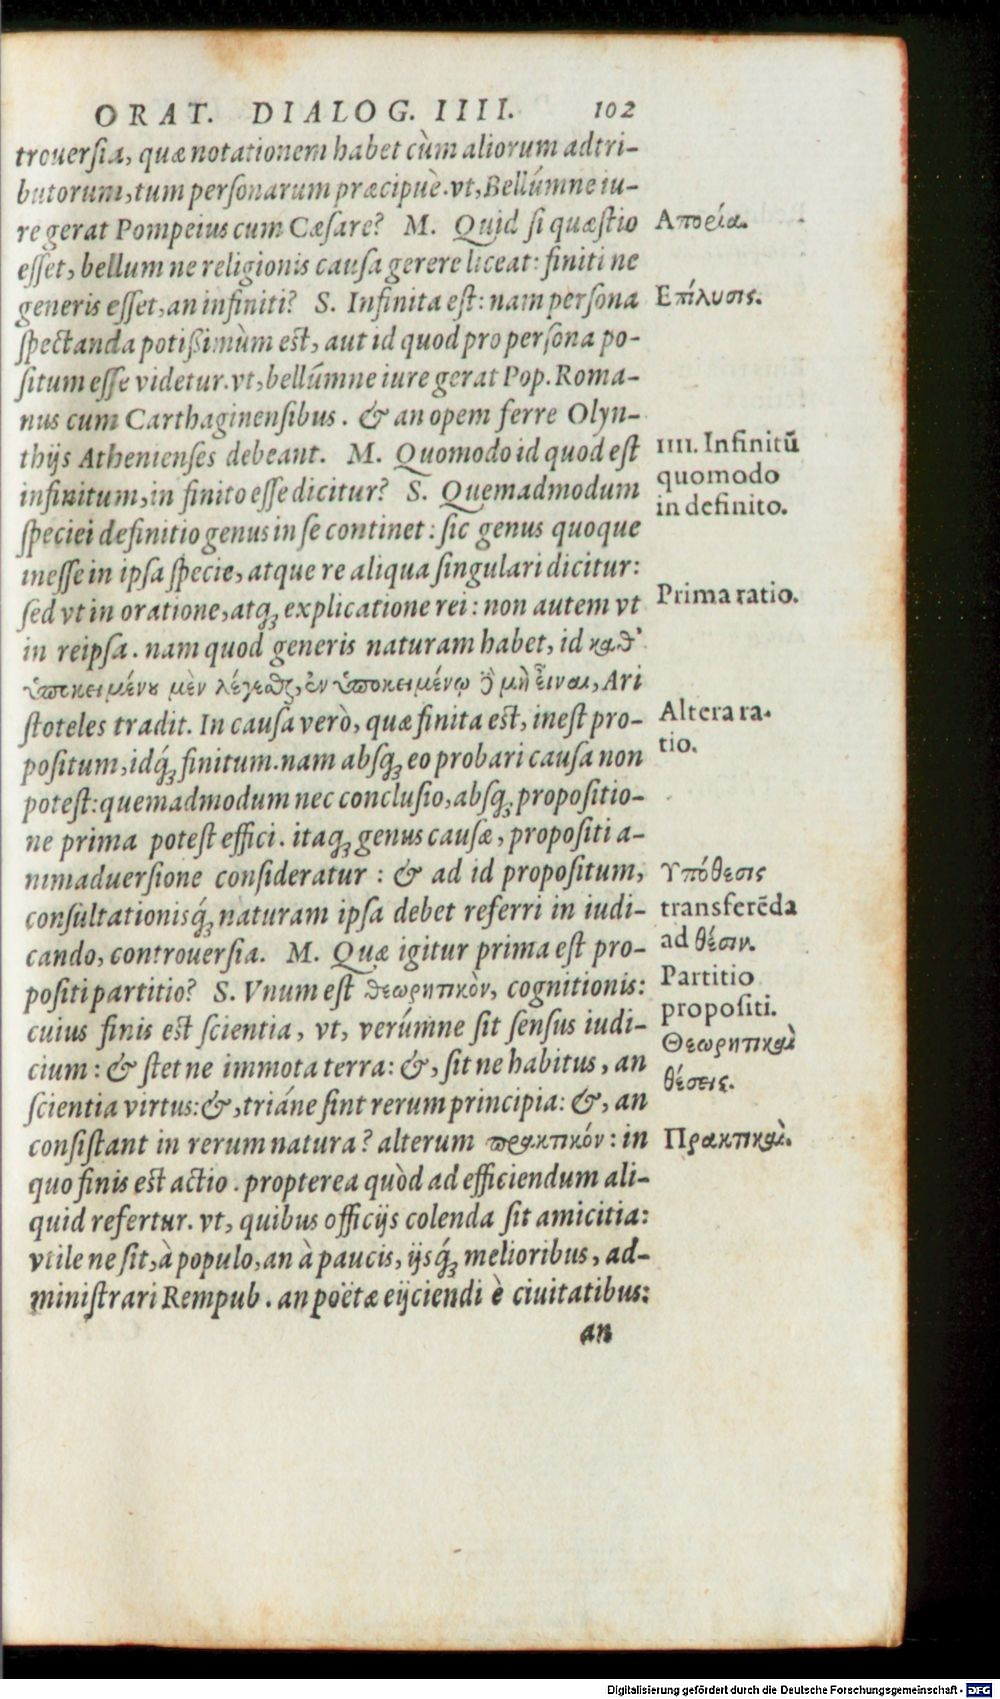 ORAT. DIALOG. IIII. 102
trouersia, quæ notationem habet cùm aliorum adtri-
butorum, tum personarum præcipuè. vt, Bellúmne iu-
re gerat Pompeius cum Cæsare? M. Quid si quæstio
Απορία.
esset, bellum ne religionis causa gerere liceat: finiti ne
generis esset, an infiniti? S. Infinita est: nam persona
Επίλυσις.
spectanda potißimùm est, aut id quod pro persona po-
situm esse videtur. vt, bellúmne iure gerat Pop. Roma-
nus cum Carthaginensibus. & an opem ferre Olyn-
thijs Athenienses debeant. M. Quomodo id quod est
IIII. Infinitū
infinitum, in finito esse dicitur? S. Quemadmodum
quomodo
in definito.
speciei definitio genus in se continet: sic genus quoque
inesse in ipsa specie, atque re aliqua singulari dicitur:
sed vt in oratione, atq; explicatione rei: non autem vt
Prima ratio.
in reipsa. nam quod generis naturam habet, id καθ'
ὑποκειμένου μὲν λέγεσθαι, ἐν ὑποκειμένῳ δὲ μὴ εἶναι, Ari
stoteles tradit. In causa verò, quæ finita est, inest pro-
Altera ra-
tio.
positum, idq́; finitum. nam absq; eo probari causa non
potest: quemadmodum nec conclusio, absq; propositio-
ne prima potest effici. itaq; genus causæ, propositi a-
nimaduersione consideratur: & ad id propositum,
Υπόθεσις
consultationisq́; naturam ipsa debet referri in iudi-
transferēda
cando, controuersia. M. Quæ igitur prima est pro-
ad θέσιν.
positi partitio? S. Vnum est θεωρητικὸν, cognitionis:
Partitio
propositi.
cuius finis est scientia, vt, verúmne sit sensus iudi-
Θεωρητικαὶ
cium: & stet ne immota terra: &, sit ne habitus, an
θέσεις.
scientia virtus: &, triáne sint rerum principia: &, an
consistant in rerum natura? alterum πρακτικόν: in
Πρακτικαὶ.
quo finis est actio. propterea quòd ad efficiendum ali-
quid refertur. vt, quibus officijs colenda sit amicitia:
vtile ne sit, à populo, an à paucis, ijsq́; melioribus, ad-
ministrari Rempub. an poëtæ eijciendi è ciuitatibus:
an
Digitalisierung gefördert durch die Deutsche Forschungsgemeinschaft - DFG